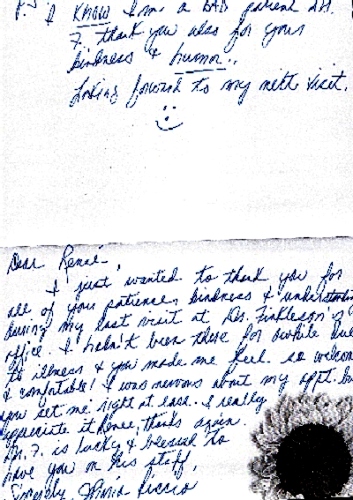 P.S. I KNOW I'm a BAD patient Dr.
F. thank you also for your
kindness & humor..
Looking forward to my next visit.
Dear Renaé,
I just wanted to thank you for
all of your patience, kindness & understanding
during my last visit at Dr. Finkleson's
office. I hadn't been there for awhile due
to illness & you made me feel so welcome
& comfortable! I was nervous about my appt. but
you set me right at ease. I really
appreciate it hence, thanks again.
Dr. F. is lucky & blessed to
have you on his staff,